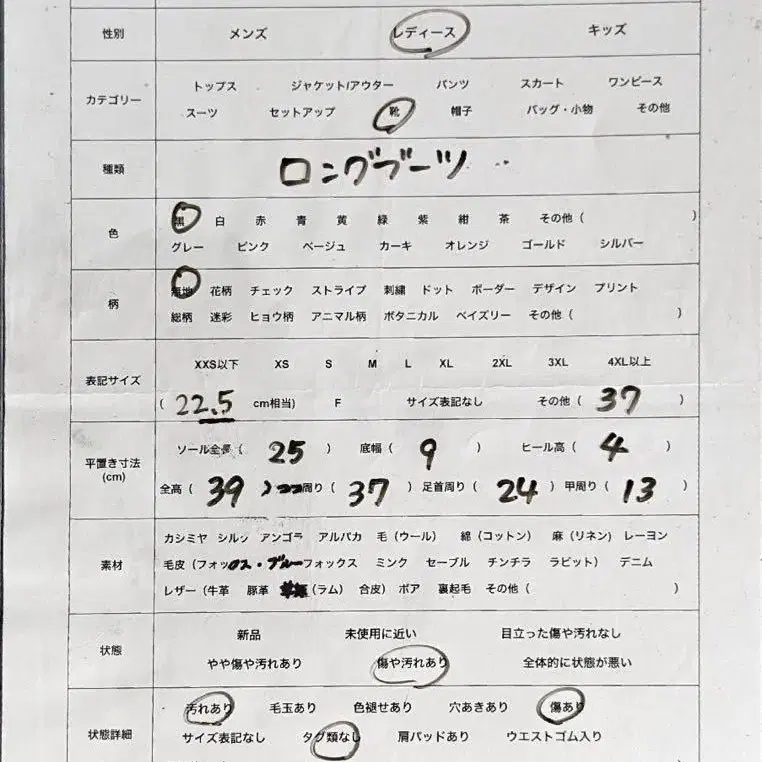 性別 メンズ レディース キッズ
カテゴリー トップス ジャケット/アウター パンツ スカート ワンピース
スーツ セットアップ 靴 帽子 バッグ・小物 その他
種類 ロングブーツ
色 黒 白 赤 青 黄 緑 紫 紺 茶 その他 ( )
グレー ピンク ベージュ カーキ オレンジ ゴールド シルバー
柄 無地 花柄 チェック ストライプ 刺繍 ドット ボーダー デザイン プリント
総柄 迷彩 ヒョウ柄 アニマル柄 ボタニカル ペイズリー その他 ( )
表記サイズ XXS以下 XS S M L XL 2XL 3XL 4XL以上
( 22.5 cm相当) F サイズ表記なし その他 ( 37 )
平置き寸法 (cm) ソール全長 ( 25 ) 底幅 ( 9 ) ヒール高 ( 4 )
全高 ( 39 ) 周り ( 37 ) 足首周り ( 24 ) 甲周り ( 13 )
素材 カシミヤ シルク アンゴラ アルパカ 毛 (ウール) 綿 (コットン) 麻 (リネン) レーヨン
毛皮 (フォックス・ブルーフォックス ミンク セーブル チンチラ ラビット) デニム
レザー (牛革 豚革 (ラム) 合皮) ボア 裏起毛 その他 ( )
状態 新品 未使用に近い 目立った傷や汚れなし
やや傷や汚れあり 傷や汚れあり 全体的に状態が悪い
状態詳細 汚れあり 毛玉あり 色褪せあり 穴あきあり 傷あり
サイズ表記なし タグ類なし 肩パッドあり ウエストゴム入り